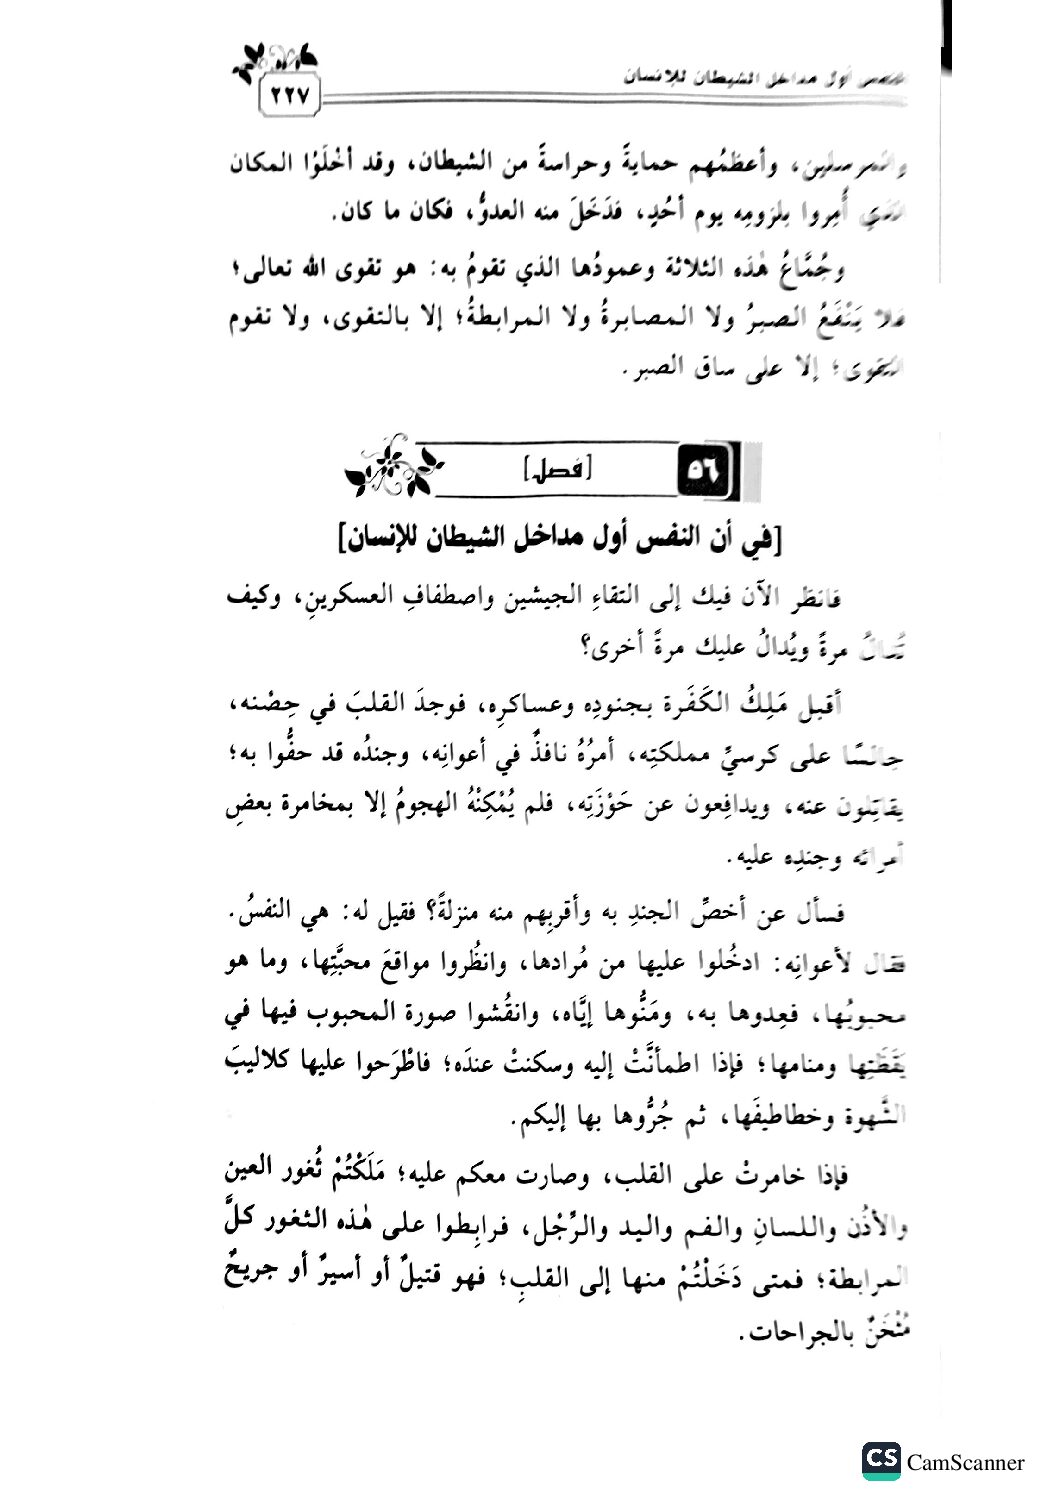 النفس أول مداخل الشيطان للإنسان
٢٢٧
والمرسلين، وأعظمُهم حمايةً وحراسةً من الشيطان، وقد أخْلَوْا المكان
الذي أُمِروا بِلزومِه يوم أحُدٍ، فدَخَلَ منه العدوُّ، فكان ما كان.
وجُمَّاعُ هٰذه الثلاثة وعمودُها الذي تقومُ به: هو تقوى الله تعالى؛
فلا يَنْفَعُ الصبرُ ولا المصابرةُ ولا المرابطةُ؛ إلا بالتقوى، ولا تقوم
التقوى؛ إلا على ساق الصبر.
٥٦
[فصل]
[في أن النفس أول مداخل الشيطان للإنسان]
فانظر الآن فيك إلى التقاءِ الجيشين واصطفافِ العسكرينِ، وكيف
تُدالُ مرةً ويُدالُ عليك مرةً أخرى؟
أقبل مَلِكُ الكَفَرة بجنودِه وعساكرِه، فوجدَ القلبَ في حِصْنه،
جالسًا على كرسيِّ مملكتِه، أمرُهُ نافذٌ في أعوانِه، وجندُه قد حفُّوا به؛
يقاتِلونَ عنه، ويدافِعون عن حَوْزَتِه، فلم يُمْكِنْهُ الهجومُ إلا بمخامرة بعضِ
أمرائه وجندِه عليه.
فسأل عن أخصِّ الجندِ به وأقربِهم منه منزلةً؟ فقيل له: هي النفسُ.
فقال لأعوانِه: ادخُلوا عليها من مُرادها، وانظُروا مواقعَ محبَّتِها، وما هو
محبوبُها، فعِدوها به، ومَنُّوها إيَّاه، وانقُشوا صورة المحبوب فيها في
يَقَظَتِها ومنامها؛ فإذا اطمأنَّتْ إليه وسكنتْ عندَه؛ فاطْرَحوا عليها كلاليبَ
الشَّهوة وخطاطيفَها، ثم جُرُّوها بها إليكم.
فإذا خامرتْ على القلب، وصارت معكم عليه؛ مَلَكْتُمْ ثُغور العين
والأذُن واللسانِ والفم واليد والرِّجْل، فرابِطوا على هٰذه الثغور كلَّ
المرابطة؛ فمتى دَخَلْتُمْ منها إلى القلبِ؛ فهو قتيلٌ أو أسيرٌ أو جريحٌ
مُثْخَنٌ بالجراحات.
CS CamScanner